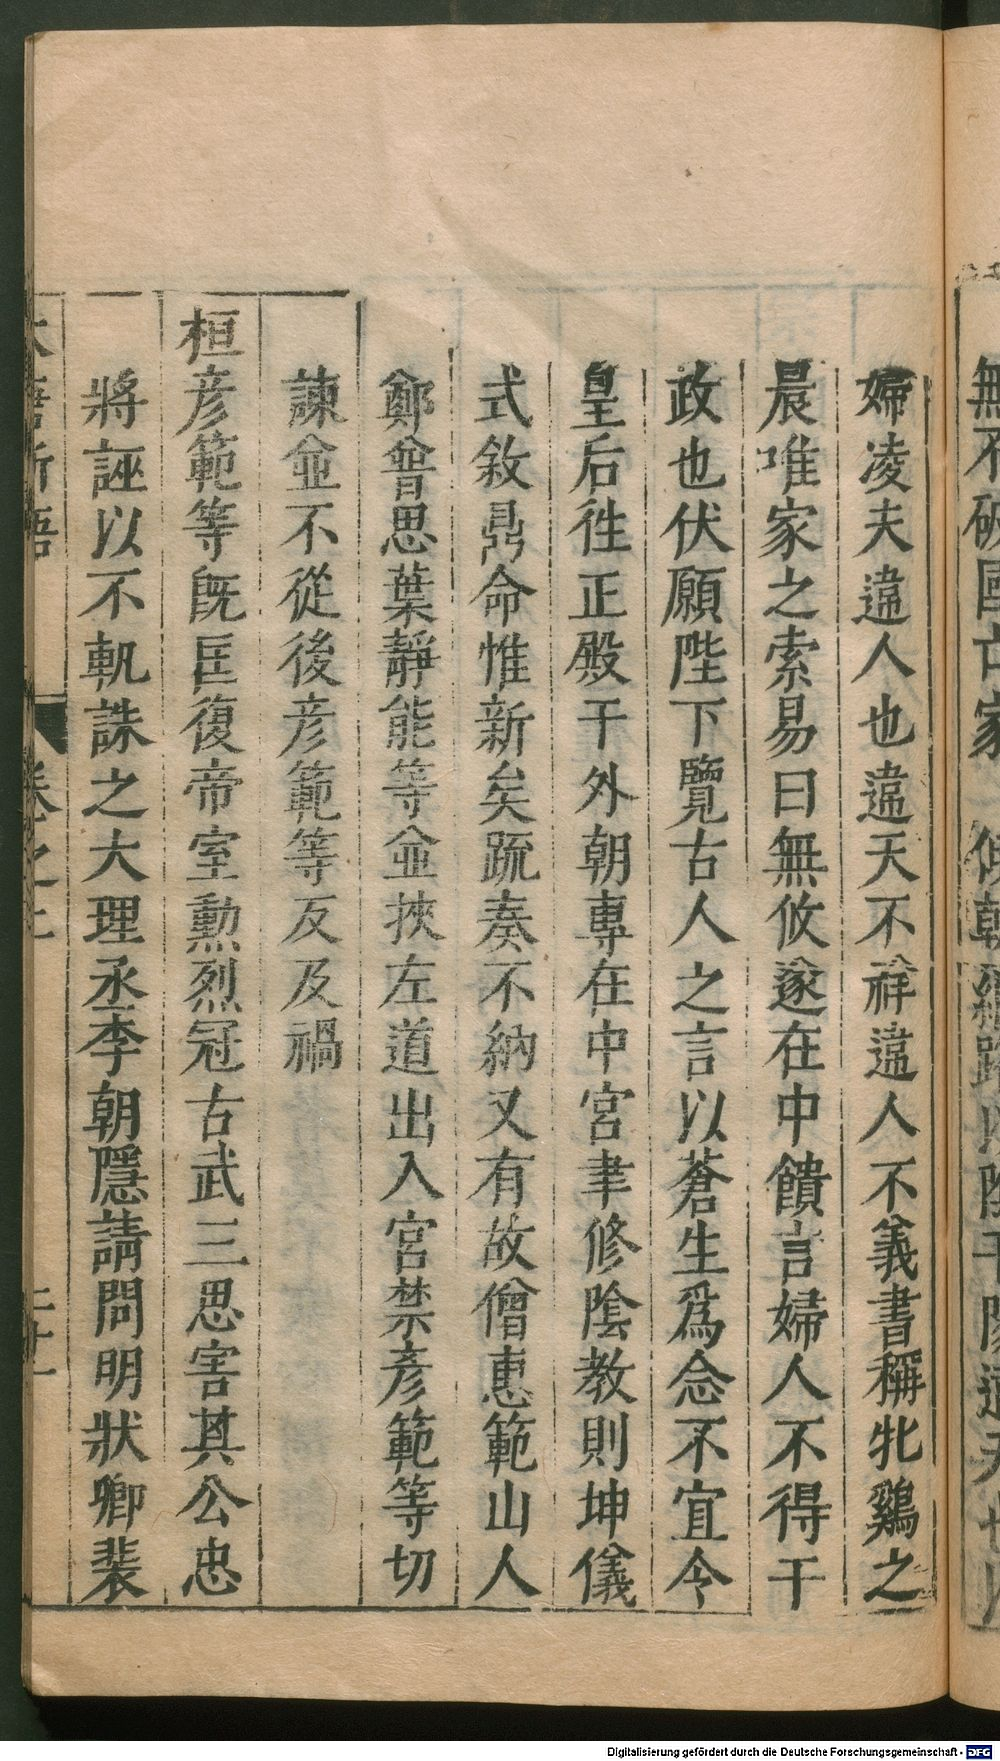 婦凌夫違人也違天不祥違人不義書稱牝鷄之
晨唯家之索易曰無攸遂在中饋言婦人不得干
政也伏願陛下覽古人之言以蒼生爲念不宜令
皇后徃正殿干外朝專在中宮聿修陰教則坤儀
式敘鼎命惟新矣疏奏不納又有故僧惠範山人
鄭普思葉靜能等並挾左道出入宮禁彥範等切
諫並不從後彥範等反及禍
桓彥範等旣匡復帝室勳烈冠古武三思害其公忠
將誣以不軌誅之大理丞李朝隱請問明狀卿裴
Digitalisierung gefördert durch die Deutsche Forschungsgemeinschaft - DFG